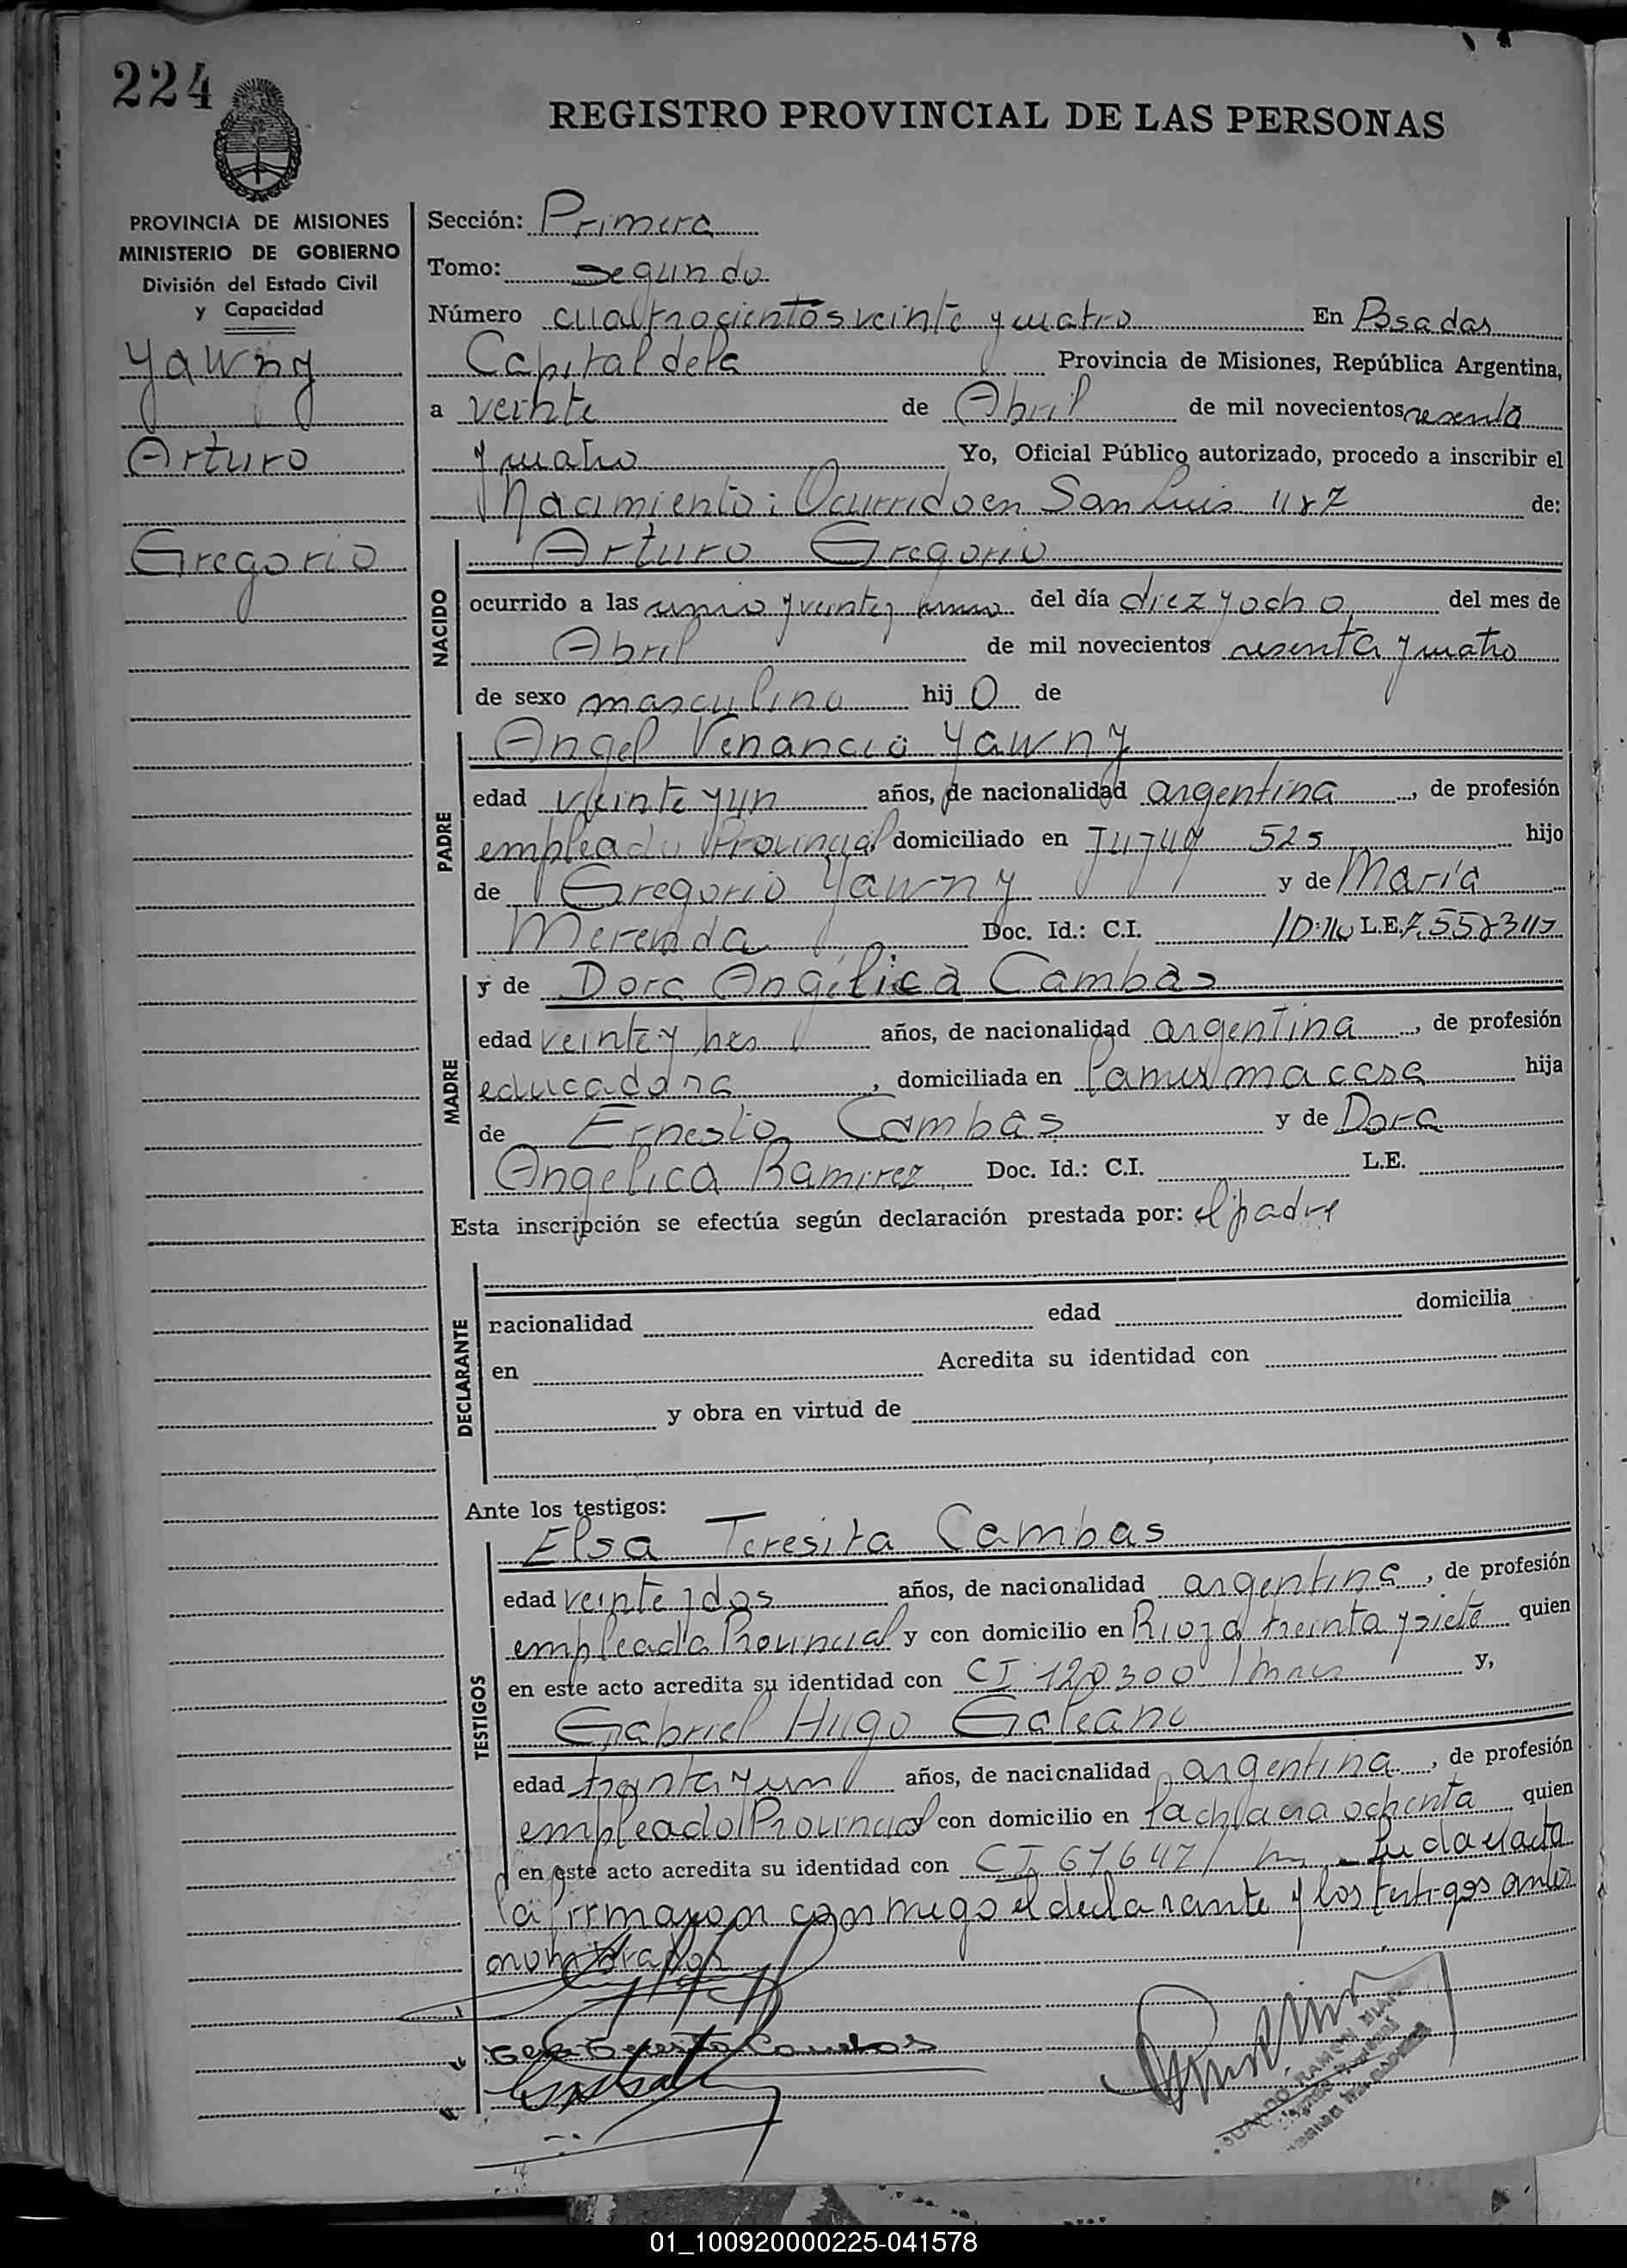 224
REGISTRO PROVINCIAL DE LAS PERSONAS
PROVINCIA DE MISIONES
MINISTERIO DE GOBIERNO
División del Estado Civil
y Capacidad
Yawny
Arturo
Gregorio
Sección: Primera
Tomo: segundo
Número cuatrocientos veinte y cuatro En Posadas
Capital de la Provincia de Misiones, República Argentina,
a veinte de Abril de mil novecientos sesenta
y cuatro Yo, Oficial Público autorizado, procedo a inscribir el
Nacimiento: Ocurrido en San Luis de:
NACIDO
Arturo Gregorio
ocurrido a las del día diez y ocho del mes de
Abril de mil novecientos sesenta y cuatro
de sexo masculino hijo de
PADRE
Angel Venancio Yawny
edad veinte y un años, de nacionalidad argentina, de profesión
empleado Provincial domiciliado en Jujuy 525 hijo
de Gregorio Yawny y de María
Merenda Doc. Id.: C.I. L.E.
MADRE
y de Dora Angélica Cambas
edad veinte y tres años, de nacionalidad argentina, de profesión
educadora, domiciliada en la misma casa hija
de Ernesto Cambas y de Dora
Angelica Ramirez Doc. Id.: C.I. L.E.
Esta inscripción se efectúa según declaración prestada por: el padre
DECLARANTE
nacionalidad edad domicilia
en Acredita su identidad con
y obra en virtud de
Ante los testigos:
TESTIGOS
Elsa Teresita Cambas
edad veinte y dos años, de nacionalidad argentina, de profesión
empleada Provincial y con domicilio en Rioja treinta y siete quien
en este acto acredita su identidad con CI 120300 y,
Gabriel Hugo Galeano
edad treinta y un años, de nacionalidad argentina, de profesión
empleado Provincial y con domicilio en la chacra ochenta quien
en este acto acredita su identidad con CI 67647 Leida el acta
la firmaron conmigo el declarante y los testigos antes
nombrados
01_100920000225-041578